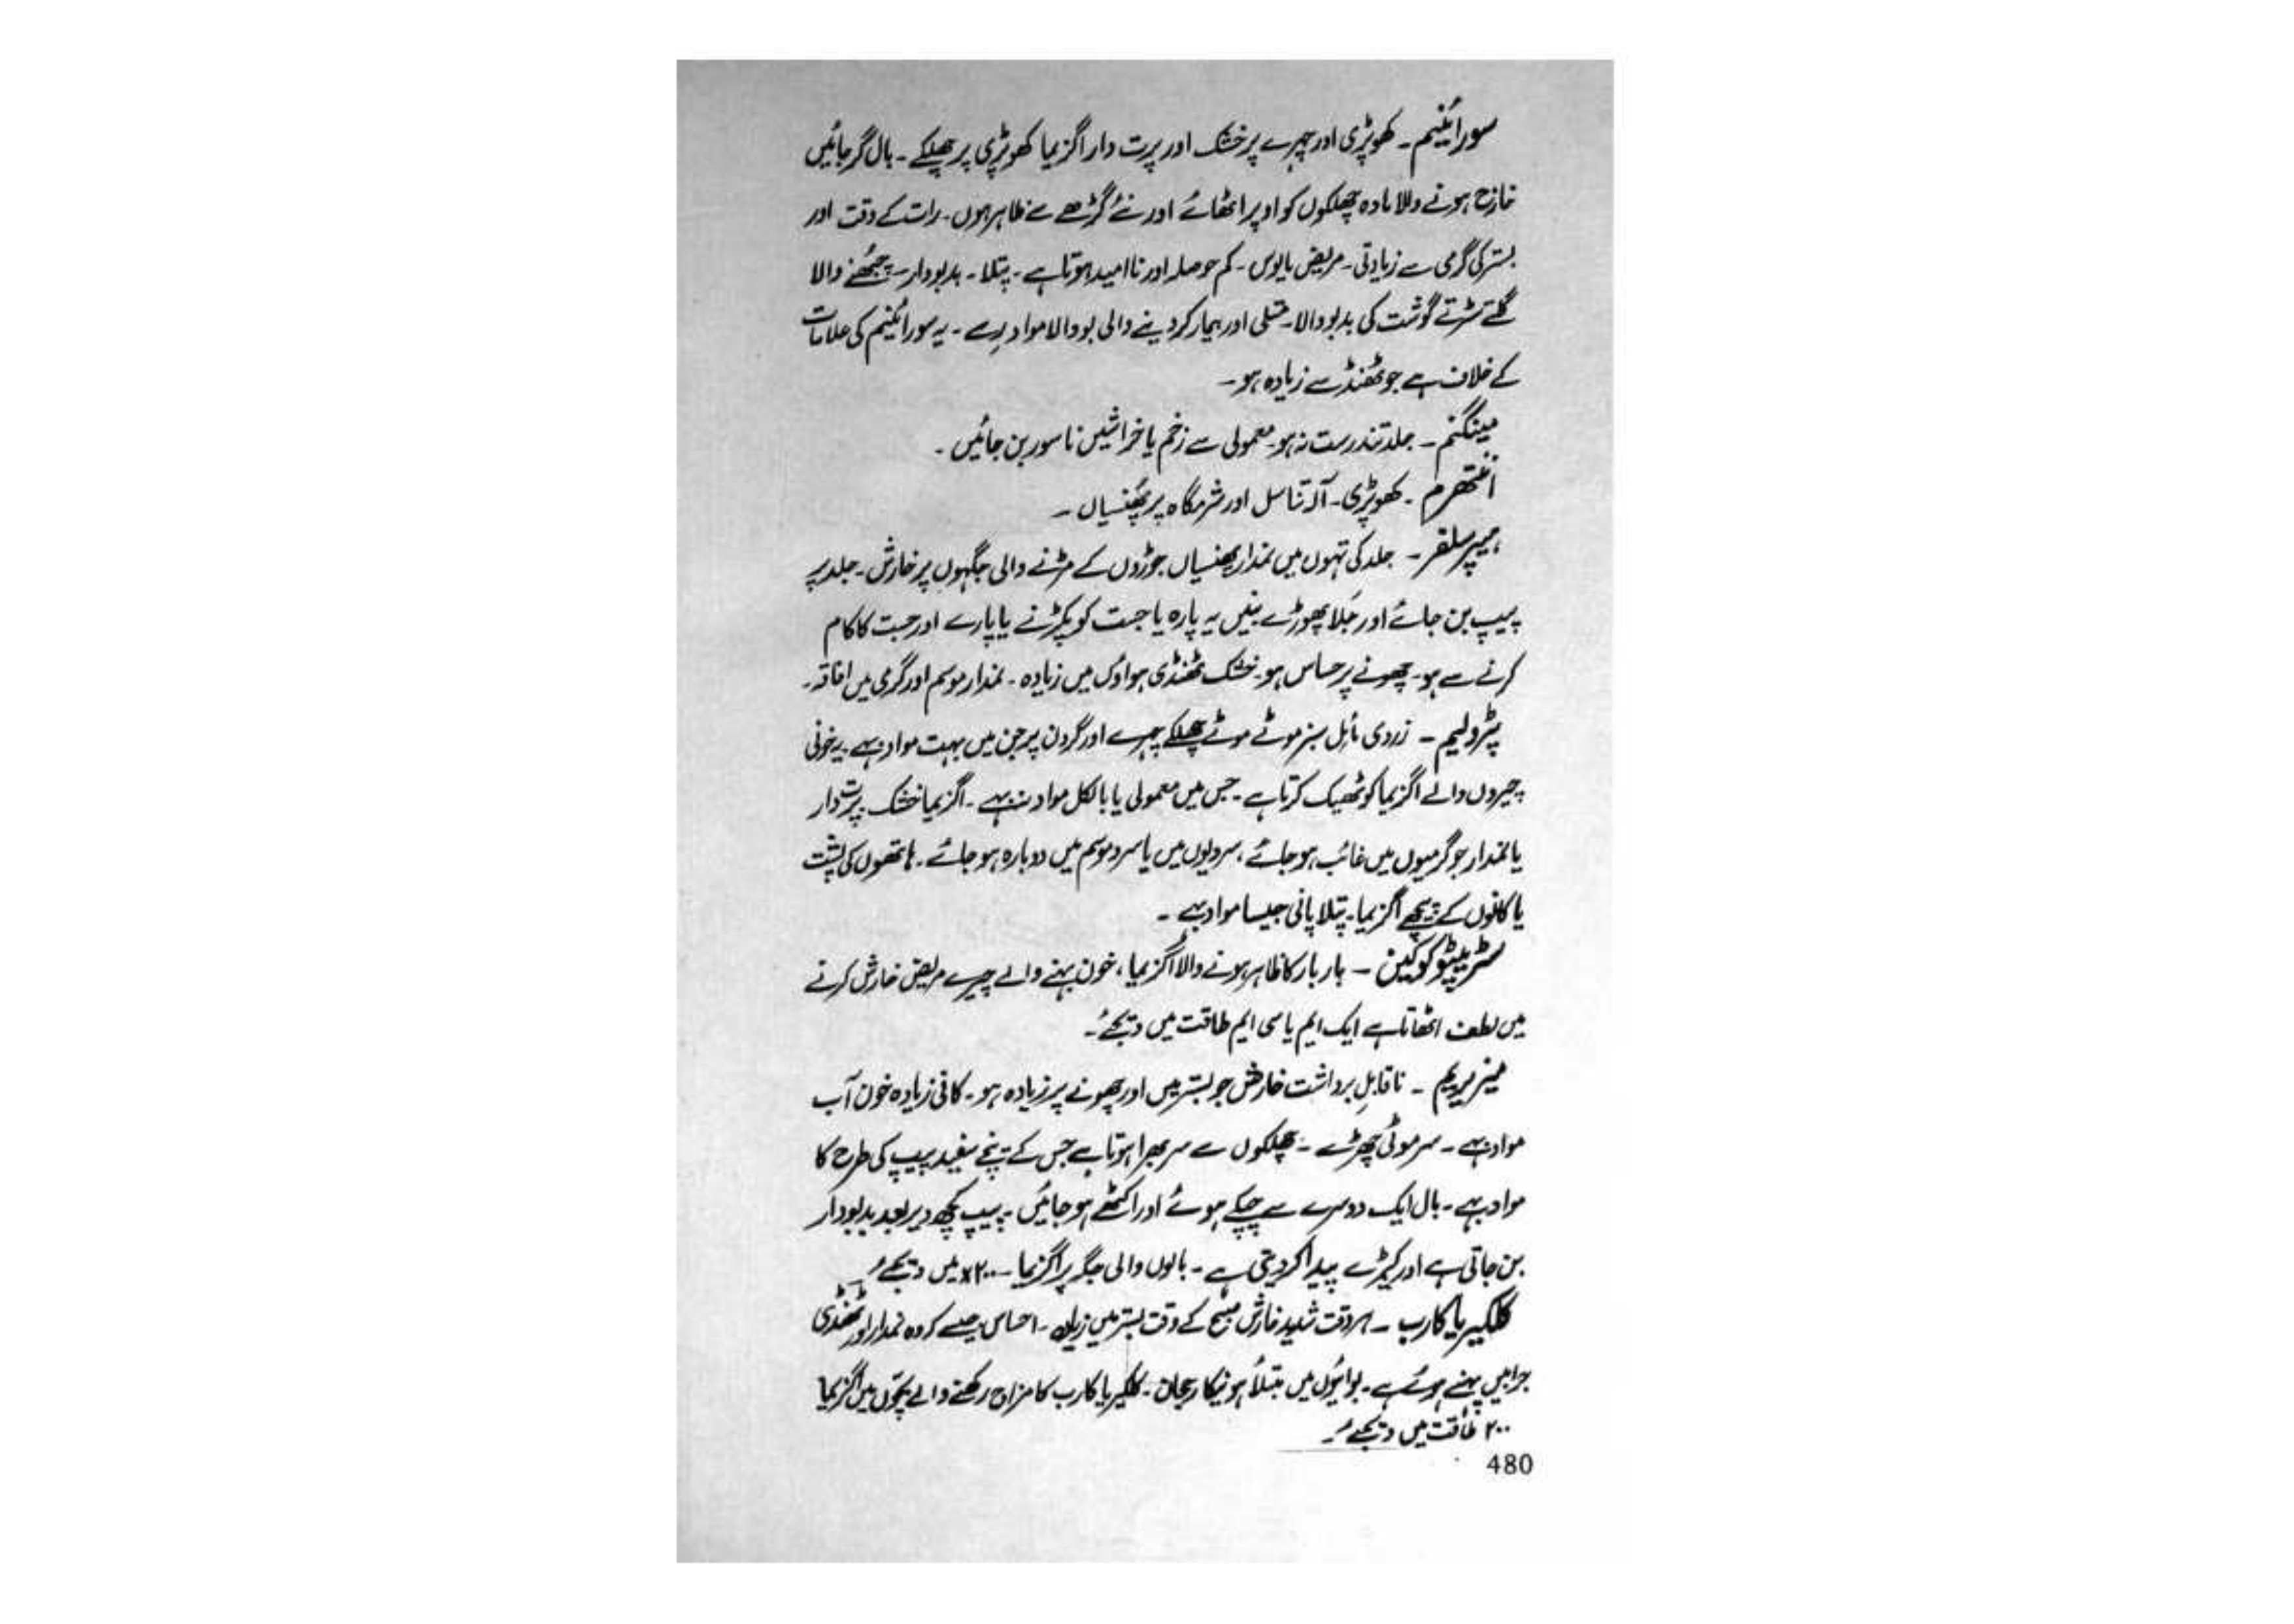 سورائینم ۔ کھوپڑی اور چہرے پر خشک اور پرت دار اگزیما کھوپڑی پر چھلکے ۔ بال گر جائیں
خارج ہونے والا مادہ چھلکوں کو اوپر اٹھائے اور نئے گڑھے سے ظاہر ہوں ۔ رات کے وقت اور
بستر کی گرمی سے زیادتی ۔ مریض مایوس ۔ کم حوصلہ اور ناامید ہوتا ہے ۔ پتلا ۔ بدبودار ۔ چبھنے والا
گلے سڑتے گوشت کی بدبو والا ۔ متلی اور بیمار کر دینے والی بو والا مواد بہے ۔ یہ سورائینم کی علامات
کے خلاف ہے جو ٹھنڈ سے زیادہ ہو ۔
مینگنم ۔ جلد تندرست نہ ہو ۔ معمولی سے زخم یا خراشیں ناسور بن جائیں ۔
۔ کھوپڑی ۔ آلہ تناسل اور شرمگاہ پر پھنسیاں ۔
ہیپر سلفر ۔ جلد کی تہوں میں نمدار پھنسیاں جوڑوں کے مڑنے والی جگہوں پر خارش ۔ جلد پر
پیپ بن جائے اور پھوڑے بنیں یہ پارہ یا جست کو پکڑنے یا پارے اور جست کا کام
کرنے سے ہو ۔ چھونے پر حساس ہو ۔ خشک ٹھنڈی ہواؤں میں زیادہ ۔ نمدار موسم اور گرمی میں افاقہ ۔
پٹرولیم ۔ زردی مائل سبز موٹے موٹے چھلکے چہرے اور گردن پر جن میں بہت مواد بہے ۔ یہ خونی
چیروں والے اگزیما کو ٹھیک کرتا ہے ۔ جس میں معمولی یا بالکل مواد نہ بہے ۔ اگزیما خشک پرت دار
یا نمدار جو گرمیوں میں غائب ہو جائے ، سردیوں میں یا سرد موسم میں دوبارہ ہو جائے ۔ ہاتھوں کی پشت
یا کانوں کے پیچھے اگزیما ۔ پتلا پانی جیسا مواد بہے ۔
سٹریپٹوکوکین ۔ بار بار کا ظاہر ہونے والا اگزیما ، خون بہنے والے چیرے مریض خارش کرنے
میں لطف اٹھاتا ہے ایک ایم یا سی ایم طاقت میں دیجئے ۔
میزیریم ۔ ناقابلِ برداشت خارش جو بستر میں اور چھونے پر زیادہ ہو ۔ کافی زیادہ خون آب
مواد بہے ۔ سر موٹی چمڑے ۔ چھلکوں سے سر بھرا ہوتا ہے جس کے نیچے سفید پیپ کی طرح کا
مواد بہے ۔ بال ایک دوسرے سے چپکے ہوئے اور اکٹھے ہو جائیں ۔ پیپ کچھ دیر بعد بدبودار
بن جاتی ہے اور کیڑے پیدا کر دیتی ہے ۔ بالوں والی جگہ پر اگزیما ۔ ۲۰۰x میں دیجئے
کلکیریا کارب ۔ ہر وقت شدید خارش صبح کے وقت بستر میں زیادہ ۔ احساس جیسے کہ وہ نمدار اور ٹھنڈی
جرابیں پہنے ہوئے ہے ۔ بوائیوں میں مبتلا ہونیکا رجحان ۔ کلکیریا کارب کا مزاج رکھنے والے بچوں میں اگزیما
۲۰۰ طاقت میں دیجئے ۔
480